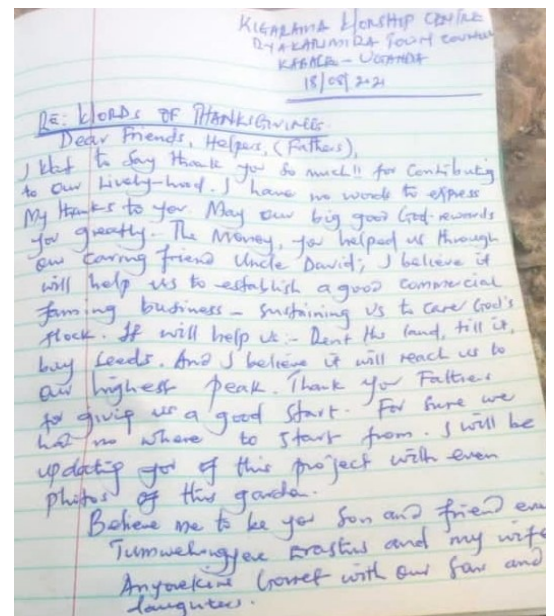 KIGARAMA WORSHIP CENTRE
RYAKARIMIRA TOWN COUNCIL
KABALE - UGANDA
18/08/2021
RE: WORDS OF THANKSGIVINGS.
Dear Friends, Helpers, (Fathers),
I want to say thank you so much!! for contributing
to our Lively-hood. I have no words to express
My thanks to you. May our big good God rewards
you greatly. The Money, you helped us through
our caring friend Uncle David; I believe it
will help us to establish a good commercial
faming business - sustaining us to care God's
flock. It will help us:- Rent the land, till it,
buy seeds. And I believe it will reach us to
our highest peak. Thank you Fathers
for giving us a good start. For sure we
had no where to start from. I will be
updating you of this project with even
photos of this garden.
Believe me to be your Son and friend
Erastus and my wife
with our Son and
daughters.